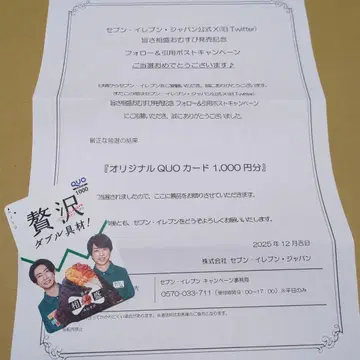 セブン‐イレブン・ジャパン公式X(旧Twitter)
旨さ相盛おむすび発売記念
フォロー&引用ポストキャンペーン
ご当選おめでとうございます♪
旨さ相盛おむすび発売記念 フォロー&引用ポストキャンペーン
にご応募いただき、誠にありがとうございました。
厳正な抽選の結果
『オリジナル QUO カード 1,000 円分』
当選されましたので、ここに賞品をお贈りさせていただきます。
今後とも、セブン‐イレブンをどうぞよろしくお願いいたします。
2025 年 12 月吉日
株式会社 セブン‐イレブン・ジャパン
セブン‐イレブン キャンペーン事務局
0570-033-711
QUO
1000
贅沢
ダブル具材!
相盛